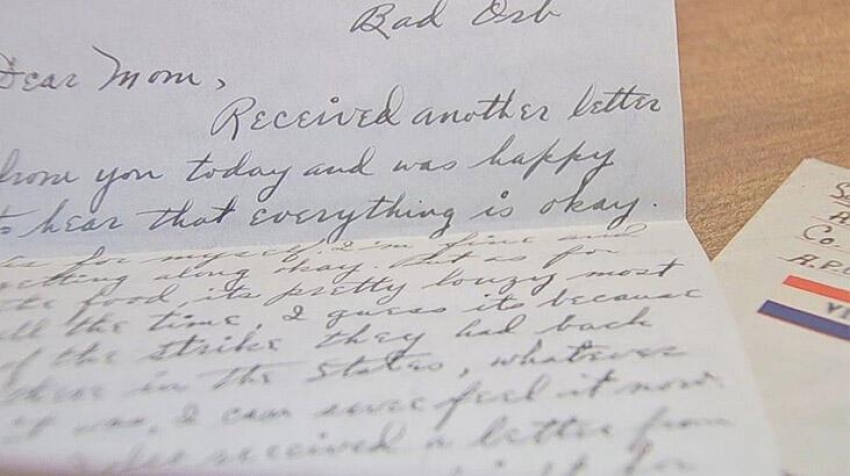 Bad Orb
Dear Mom,
Received another letter
from you today and was happy
to hear that everything is okay.
As for myself, I'm fine and
getting along okay. But as for
the food, its pretty louzy most
all the time, I guess its because
of the strike they had back
there in the States, whatever
it was, I can sure feel it now.
received a letter from
Co.
A.P.O